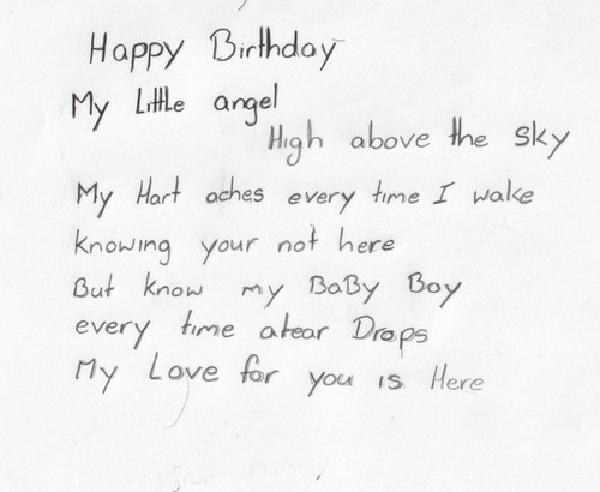 Happy Birthday
My Little angel
High above the sky
My Hart aches every time I wake
knowing your not here
But know my BaBy Boy
every time atear Drops
My Love for you is Here